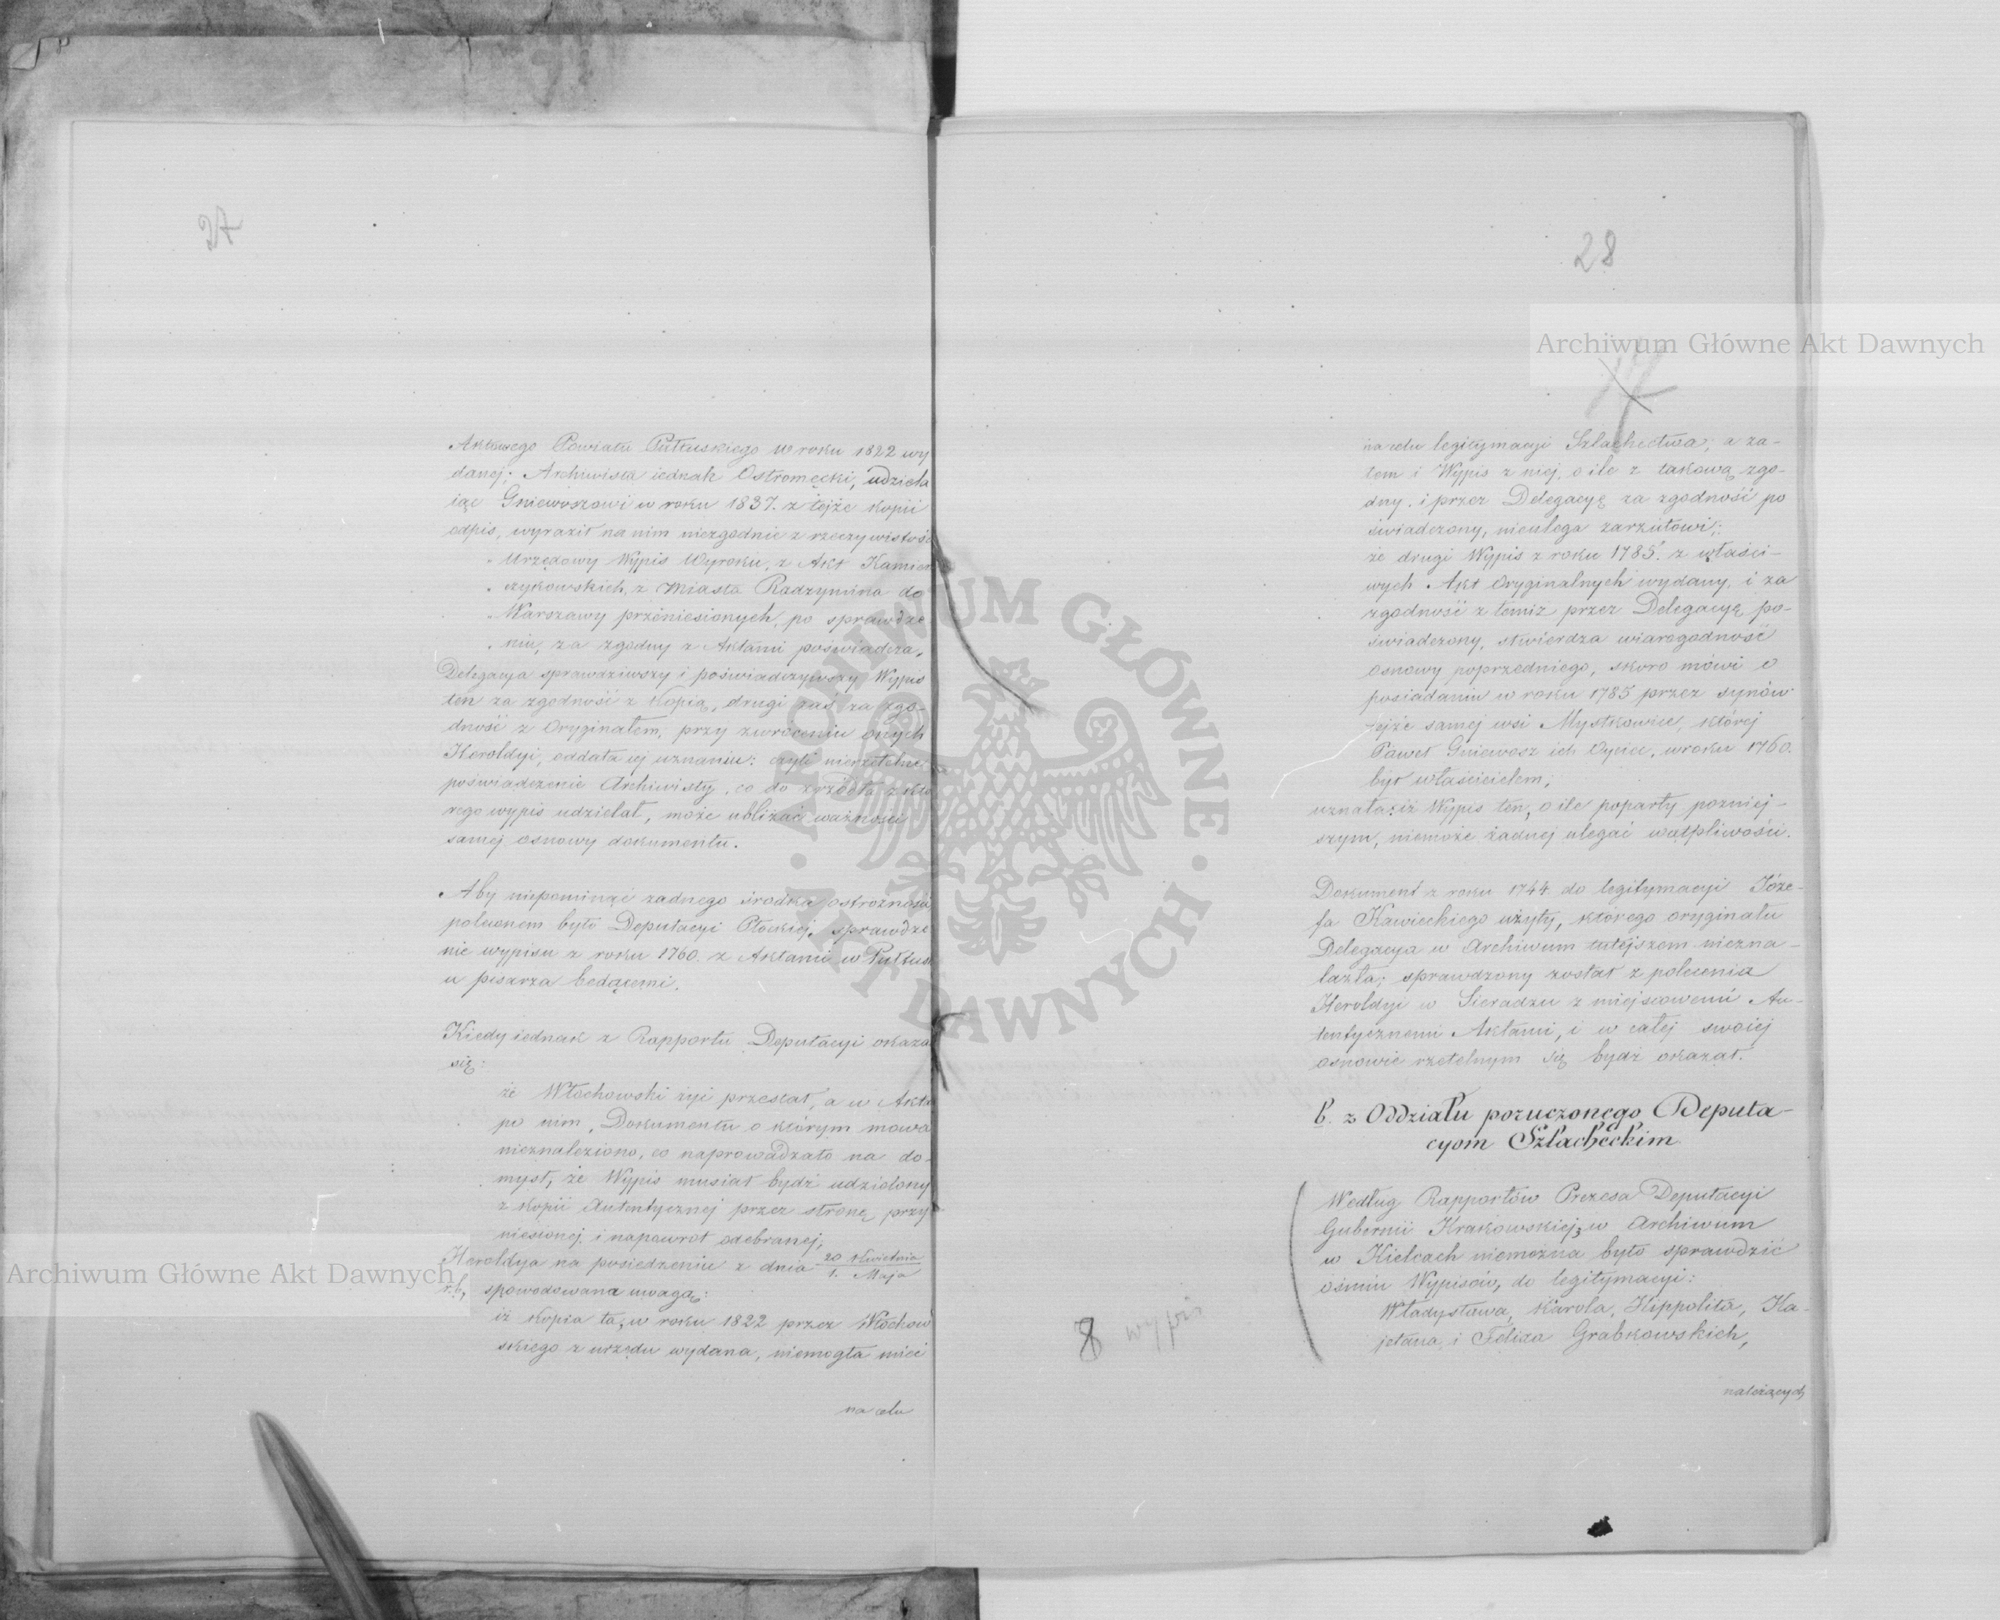 27
Aktowego Powiatu Pułtuskiego w roku 1822 wy
danej; Archiwista iednak Ostromęcki, udziela
iąc Gniewoszowi w roku 1837. z tejże kopii
odpis, wyraził na nim niezgodnie z rzeczywistością
„Urzędowy Wypis Wyroku, z Akt Kamień
„czykowskich, z Miasta Radzymina do
„Warszawy przeniesionych, po sprawdze
„niu, za zgodny z Aktami poświadcza„
Delegacya sprawdziwszy i poświadczywszy Wypis
ten za zgodność z Kopią, drugi zaś za zgo-
dność z Oryginałem, przy zwróceniu onych
Heroldyi, oddała jej uznaniu: czyli nierzetelne
poświadczenie Archiwisty, co do źródła z któ
rego wypis udzielał, może ubliżać ważności
samej osnowy dokumentu.
Aby niepominąć żadnego środka ostrożności
poleconem było Deputacyi Płockiej, sprawdze
nie wypisu z roku 1760. z Aktami w Pułtusku
u pisarza będącemi.
Kiedy iednak z Rapportu Deputacyi okazało
się:
że Włochowski żyć przestał, a w Aktach
po nim, Dokumentu o którym mowa
nieznaleziono, co naprowadzało na do-
mysł, że Wypis musiał bydź udzielony
z kopii Autentycznej przez stronę przy
niesionej i napowrót odebranej,
Heroldya na posiedzeniu z dnia 20 Kwietnia / 1. Maja
r.b, spowodowana uwagą:
iż kopia ta, w roku 1822 przez Włochow
skiego z urzędu wydana, niemogła mieć
na celu
28
Archiwum Główne Akt Dawnych
na celu legitymacyi Szlachectwa; a za-
tem i Wypis z niej, o ile z takową zgo-
dny, i przez Delegacyę za zgodność po
świadczony, nieulega zarzutowi;
że drugi Wypis z roku 1785. z właści-
wych Akt Oryginalnych wydany, i za
zgodność z temiż przez Delegacyę po-
świadczony, stwierdza wiarogodność
osnowy poprzedniego, skoro mówi o
posiadaniu w roku 1785 przez synów
tejże samej wsi Mystkowiec, której
Paweł Gniewosz ich Oyciec, w roku 1760.
był właścicielem;
uznała: iż Wypis ten, o ile poparty pozniej-
szym, niemoże żadnej ulegać wątpliwości.
Dokument z roku 1744. do legitymacyi Józe-
fa Kawieckiego użyty, którego oryginału
Delegacya w Archiwum tutejszem niezna-
lazła; sprawdzony został z polecenia
Heroldyi w Sieradzu z miejscowemi Au-
tentycznemi Aktami, i w całej swoiej
osnowie rzetelnym się bydź okazał.
b. z Oddziału poruczonego Deputa-
cyom Szlacheckim
Według Rapportów Prezesa Deputacyi
Gubernii Krakowskiej, w Archiwum
w Kielcach niemożna było sprawdzić
ośmiu Wypisów, do legitymacyi:
Władysława, Karola, Hippolita, Ka-
jetana, i Felixa Grabkowskich,
8 wypis
należących
Archiwum Główne Akt Dawnych
ARCHIWUM GŁÓWNE
AKT DAWNYCH